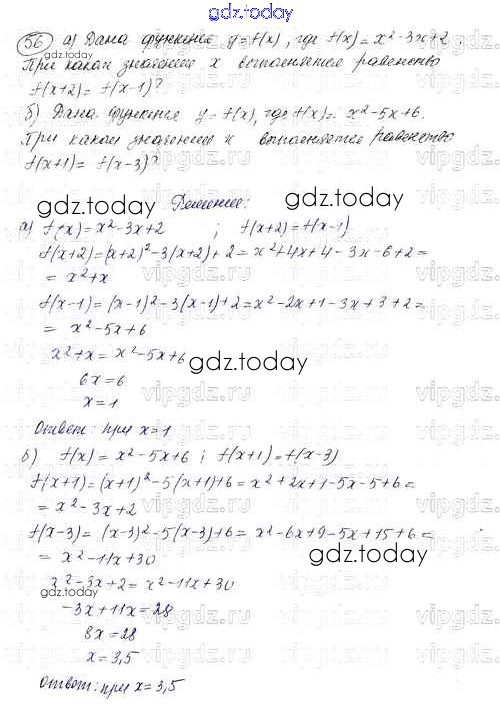 gdz.today
56 а) Дана функция y=f(x), где f(x)=x²-3x+2.
При каком значении x выполняется равенство
f(x+2)=f(x-1)?
б) Дана функция y=f(x), где f(x)=x²-5x+6.
При каком значении x выполняется равенство
f(x+1)=f(x-3)?
Решение:
а) f(x)=x²-3x+2 ; f(x+2)=f(x-1)
f(x+2)=(x+2)²-3(x+2)+2=x²+4x+4-3x-6+2=
= x²+x
f(x-1)=(x-1)²-3(x-1)+2=x²-2x+1-3x+3+2=
= x²-5x+6
x²+x=x²-5x+6
6x=6
x=1
Ответ: при x=1
б) f(x)=x²-5x+6 ; f(x+1)=f(x-3)
f(x+1)=(x+1)²-5(x+1)+6=x²+2x+1-5x-5+6=
= x²-3x+2
f(x-3)=(x-3)²-5(x-3)+6=x²-6x+9-5x+15+6=
= x²-11x+30
x²-3x+2=x²-11x+30
-3x+11x=28
8x=28
x=3,5
Ответ: при x=3,5